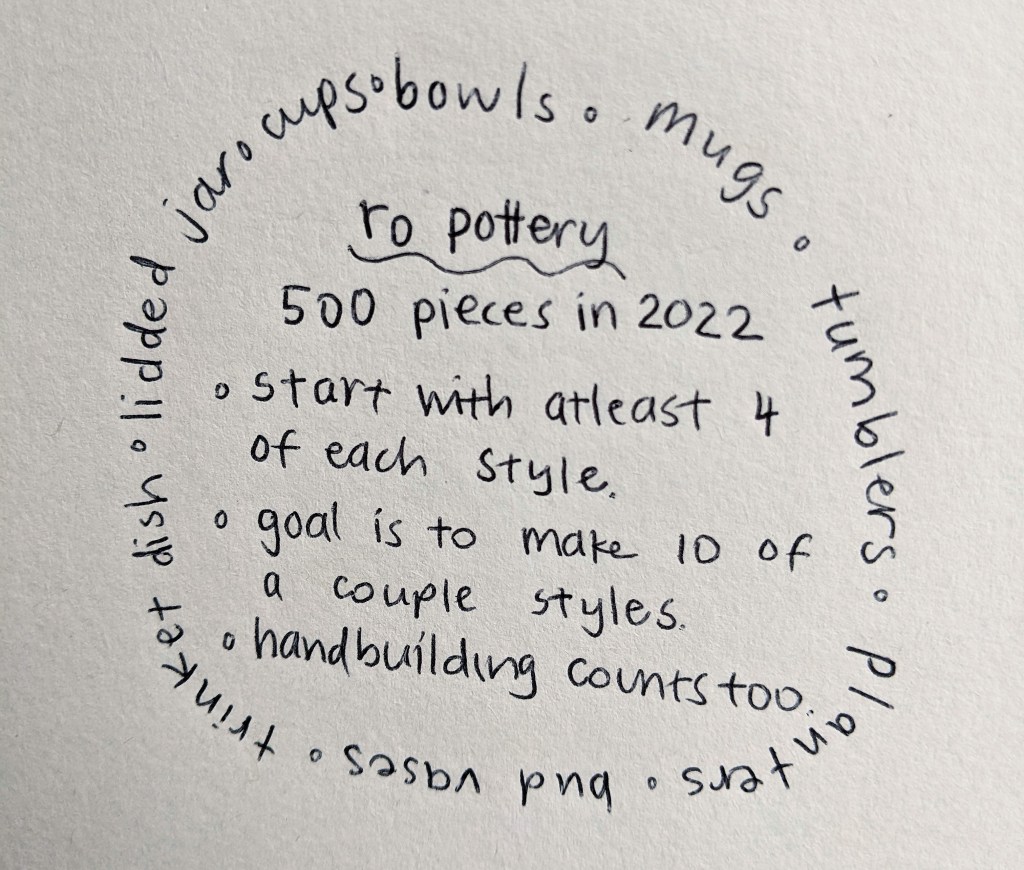 cups • bowls • mugs • tumblers • planters • bud vases • trinket dish • lidded jar •
ro pottery
500 pieces in 2022
• start with atleast 4
of each style.
• goal is to make 10 of
a couple styles.
• handbuilding counts too.